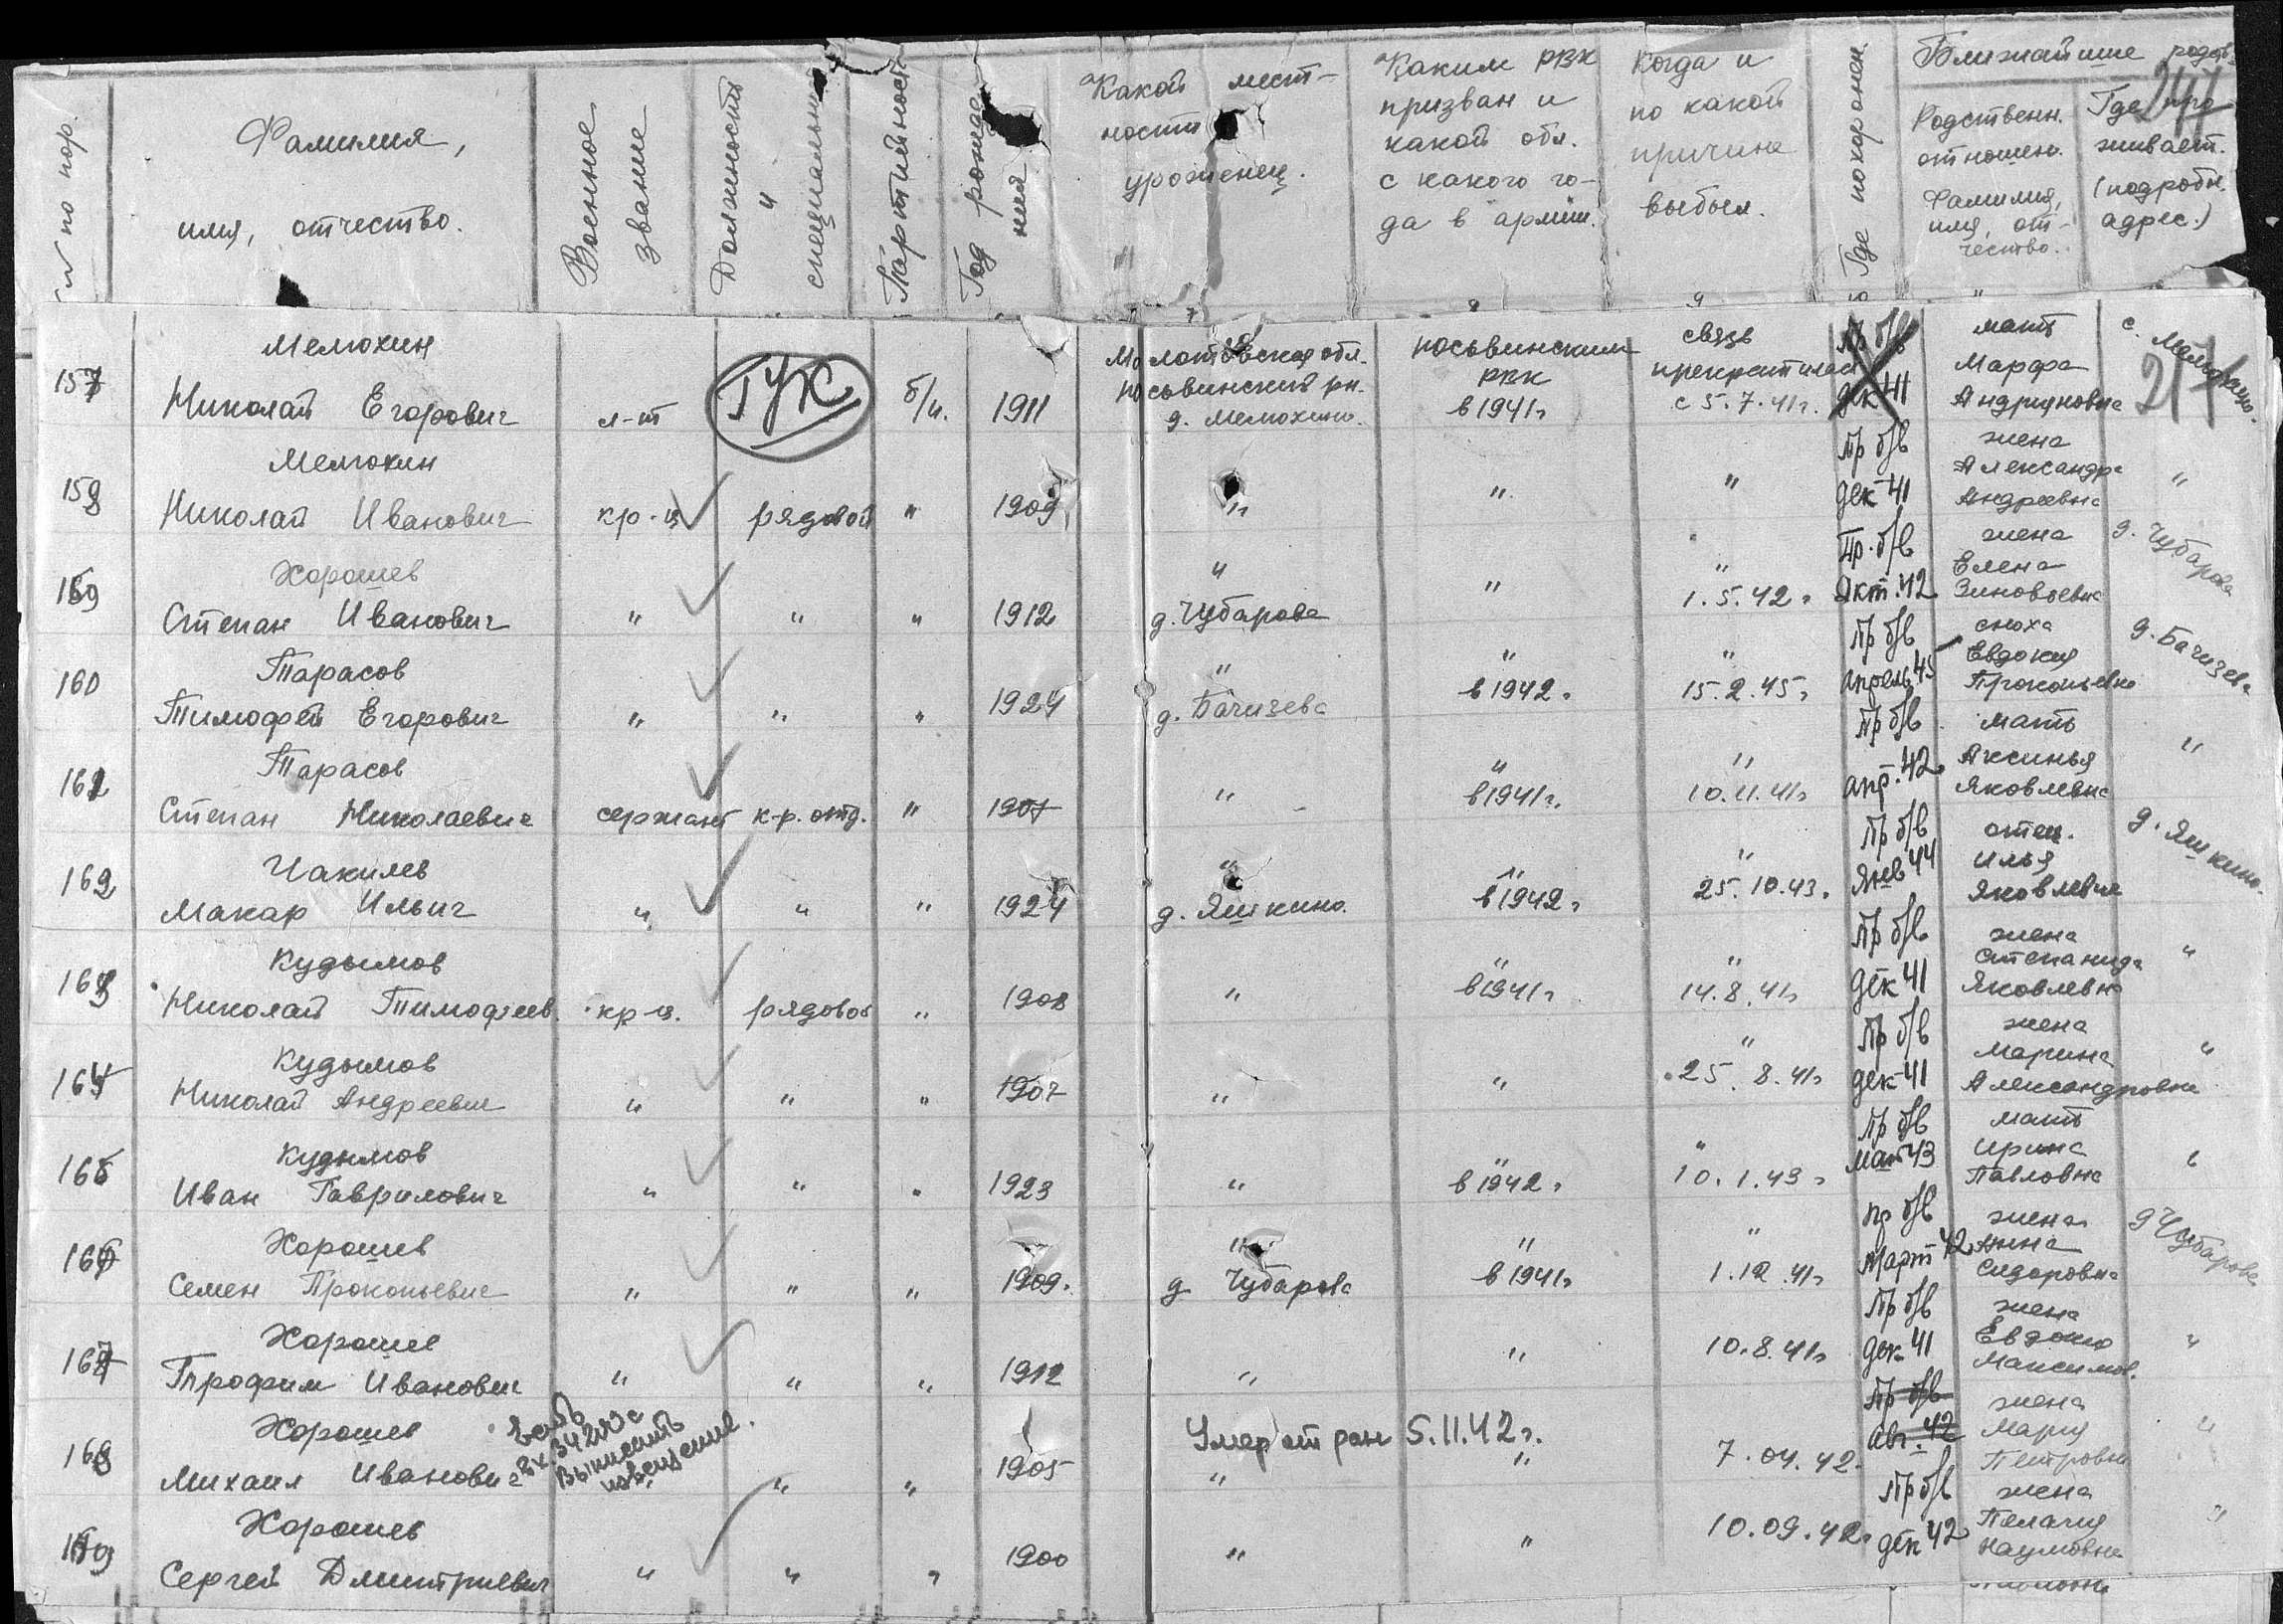 № по пор.
Фамилия,
имя, отчество.
Военное
звание
Должность
и
специальность
Партийность
Год рожде-
ния
Какой мест-
ности
уроженец.
Каким РВК
призван и
какой обл.
с какого го-
да в армии.
Когда и
по какой
причине
выбыл.
Где похоронен
Ближайшие родств.
Родственн.
отношен.
Фамилия,
имя, от-
чество.
Где про
живает.
(подробн.
адрес.)
247
157
Мелюхин
Николай Егорович
л-т
ГУК
б/п.
1911
Молотовская обл.
Косьвинский рн.
д. Мелюхино.
Косьвинским
РВК
в 1941г
связь
прекратилась
с 5.7.41г.
Пр б/в
дек 41
мать
Марфа
Андрияновна
с. Мелюхино.
217
158
Мелюхин
Николай Иванович
кр-ц
рядовой
"
1909
"
"
"
Пр б/в
дек 41
жена
Александра
Андреевна
"
159
Хорошев
Степан Иванович
"
"
"
1912
"
д. Чубарова
"
"
1.5.42г
Пр. б/в
жена
Елена
Зиновьевна
д. Чубарова
160
Тарасов
Тимофей Егорович
"
"
"
1924
"
д. Бачизева
"
в 1942г
"
15.2.45г
Пр б/в
апрель 45
сноха
Евдокия
Прокопьевна
д. Бачизева
161
Тарасов
Степан Николаевич
сержант
к-р. отд.
"
1907
"
"
в 1941г.
"
10.11.41г
Пр б/в
апр. 42
мать
Аксинья
Яковлевна
"
162
Чакилев
Макар Ильич
"
"
"
1924
"
д. Яшкино.
"
в 1942г
"
25.10.43г
Пр б/в
Янв 44
отец.
Илья
Яковлевич
д. Яшкино.
163
Кудымов
Николай Тимофеев.
кр-ц.
рядовой
"
1908
"
"
в 1941г
"
14.8.41г
Пр б/в
дек 41
жена
Степанида
Яковлевна
"
164
Кудымов
Николай Андреевич
"
"
"
1907
"
"
"
25.8.41г
Пр б/в
дек 41
жена
Марина
Александровна
"
165
Кудымов
Иван Гаврилович
"
"
"
1923
"
"
в 1942г
"
10.1.43г
Пр б/в
март 43
мать
Ирина
Павловна
"
166
Хорошев
Семен Прокопьевич
"
"
"
1909.
"
д Чубарова
"
в 1941г
"
1.12.41г
Пр б/в
Март 42
жена
Анна
Сидоровна
д Чубарова
167
Хорошев
Трофим Иванович
"
"
"
1912
"
"
10.8.41г
Пр б/в
дек 41
жена
Евдокия
Максимов.
"
168
Хорошев
Михаил Иванович
Выписать
извещение.
"
"
1905
Умер от ран 5.11.42г.
"
"
7.04.42.
Пр б/в
авг. 42
жена
Мария
Петровна
"
169
Хорошев
Сергей Дмитриевич
"
"
"
1900
"
"
10.09.42г
Пр б/в
дек 42
жена
Пелагия
Наумовна
"